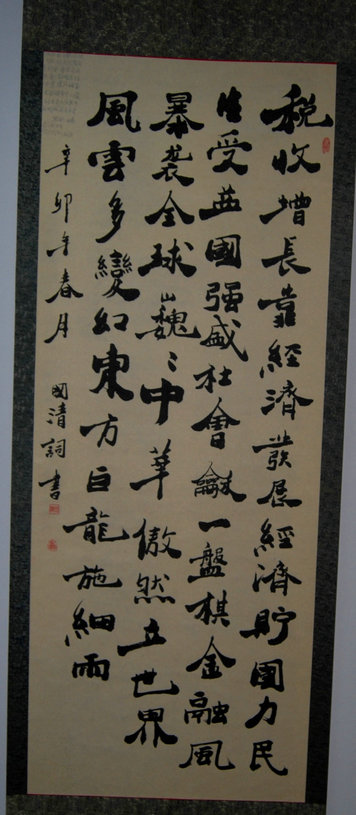 税收增長靠經濟發展經濟貯國力民
生受益國强盛社會龢一盤棋金融風
暴袭全球巍〻中華傲然立世界
風雲多變幻東方巨龍施細雨
辛卯年春月
國清詞書